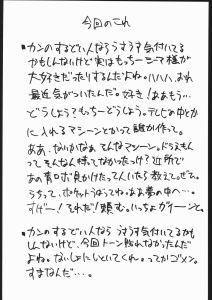 今回のこれ
・カンのするどい人ならうすうす気付いてる
かもしんないけど実はもっちーシーマ様が
大好きだったりするんだよね。ハハハ、おれ
最近気がついたんだ。好き!ああもう…
どうしよう?もっちーどうしよう。テレビの中とか
に入れるマシーンとかって誰か作って。
ああ、ないかなぁそんなマシーン。ドラえもん
ってそんなん持ってなかったっけ?近所で
あの青いの見かけたって人いたら教えて。
うちって、ポケットうばってね。ああ夢の中へ…。
すげー!それだ!頼む。いっちょガツーンと。
・カンのするどい人ならうすうす気付いてるかも
しんないけど、今回トーン貼れなかったんだ
よね。ないしょにしといてくれ。ってかゴメン。
すまなんだ…。